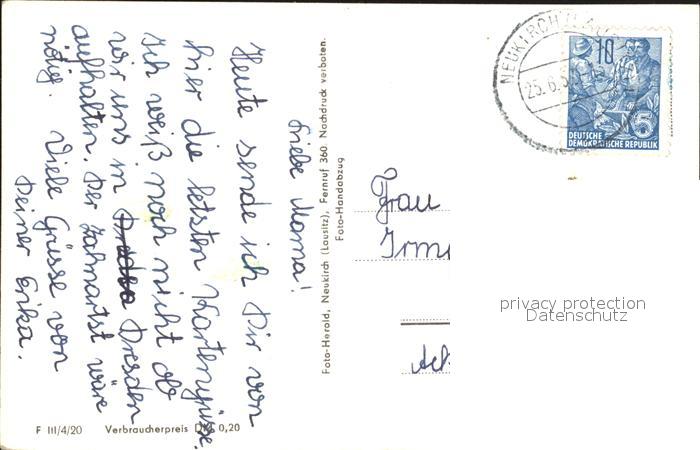 Liebe Mama!
Heute sende ich Dir von
hier die letzten Kartengrüsse.
Ich weiß noch nicht ob
wir uns in Dresden
aufhalten. Der Zahnartst wäre
nötig. Viele Grüsse von
Deiner Erika.
Foto-Herold, Neukirch (Lausitz), Fernruf 360. Nachdruck verboten.
Foto-Handabzug
F III/4/20 Verbraucherpreis DM 0,20
NEUKIRCH (LAUS
25.6.5
10
5
DEUTSCHE
DEMOKRATISCHE REPUBLIK
Frau
Irm
privacy protection
Datenschutz